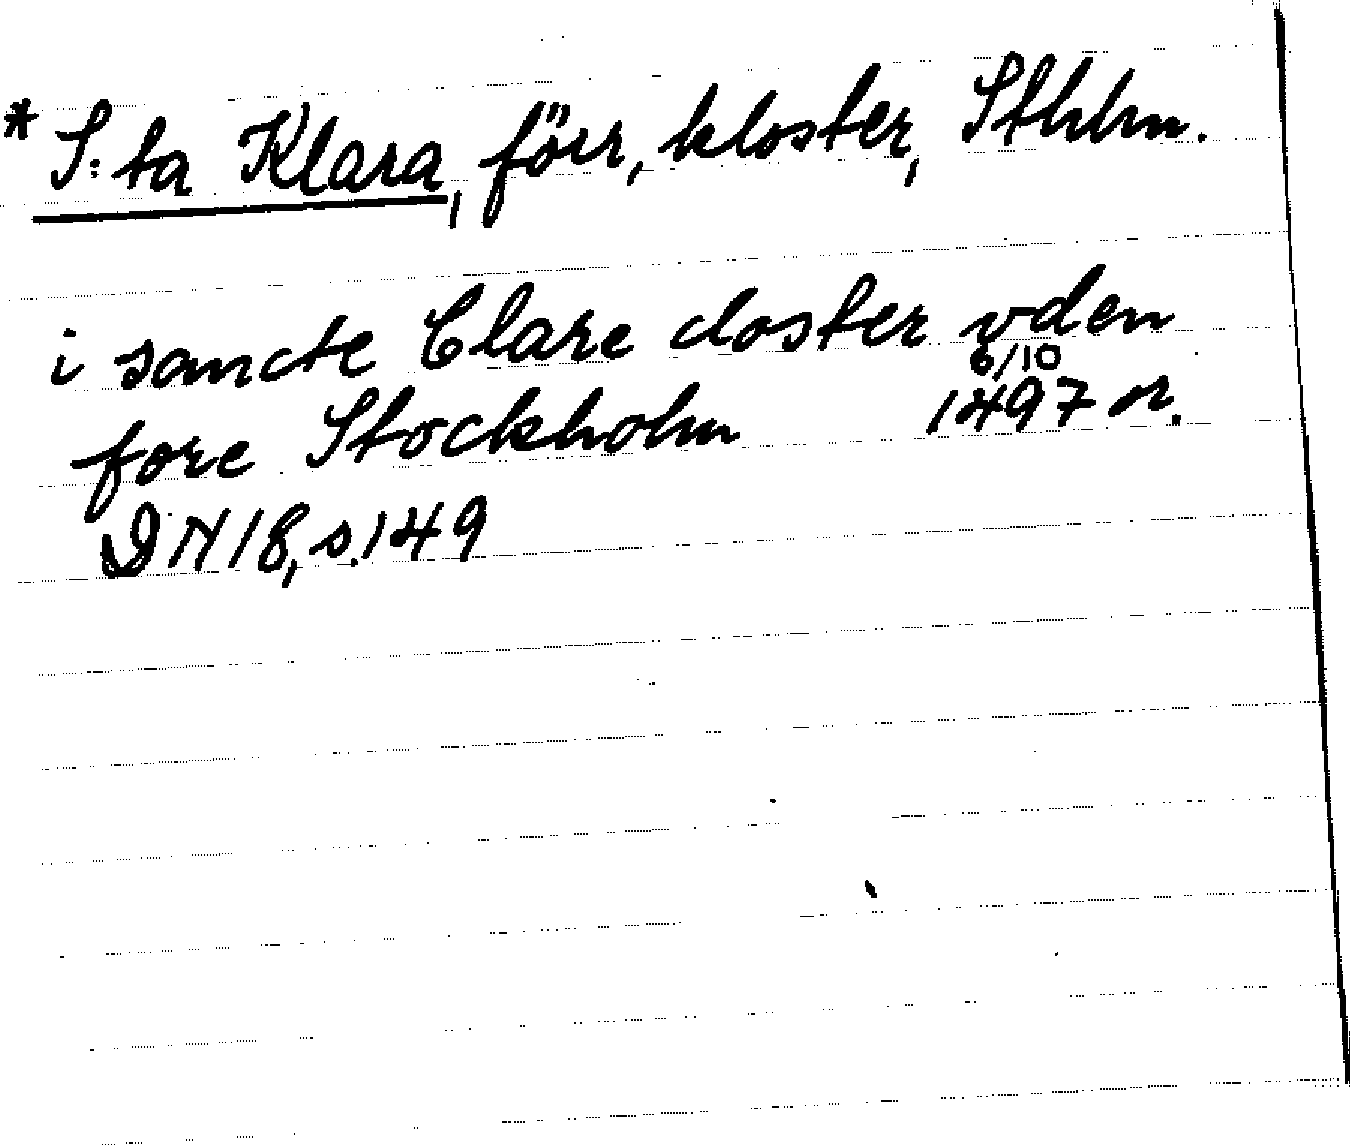 * S:ta Klara, förr, kloster, Sthlm.
i sancte Clare closter vden
fore Stockholm 6/10 1497 or.
DN 18, s. 149